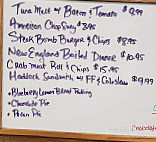 Tuna Melt w/ Bacon & Tomato $9.99
American Chop Suey $8.95
Steak Bomb Burger & Chips $8.95
New England Boiled Dinner $10.95
Crab meat Roll & Chips $15.95
Haddock Sandwich w/ FF & Coleslaw $9.99
• Blueberry Lemon Bread Pudding
• Chocolate Pie
• Pecan Pie